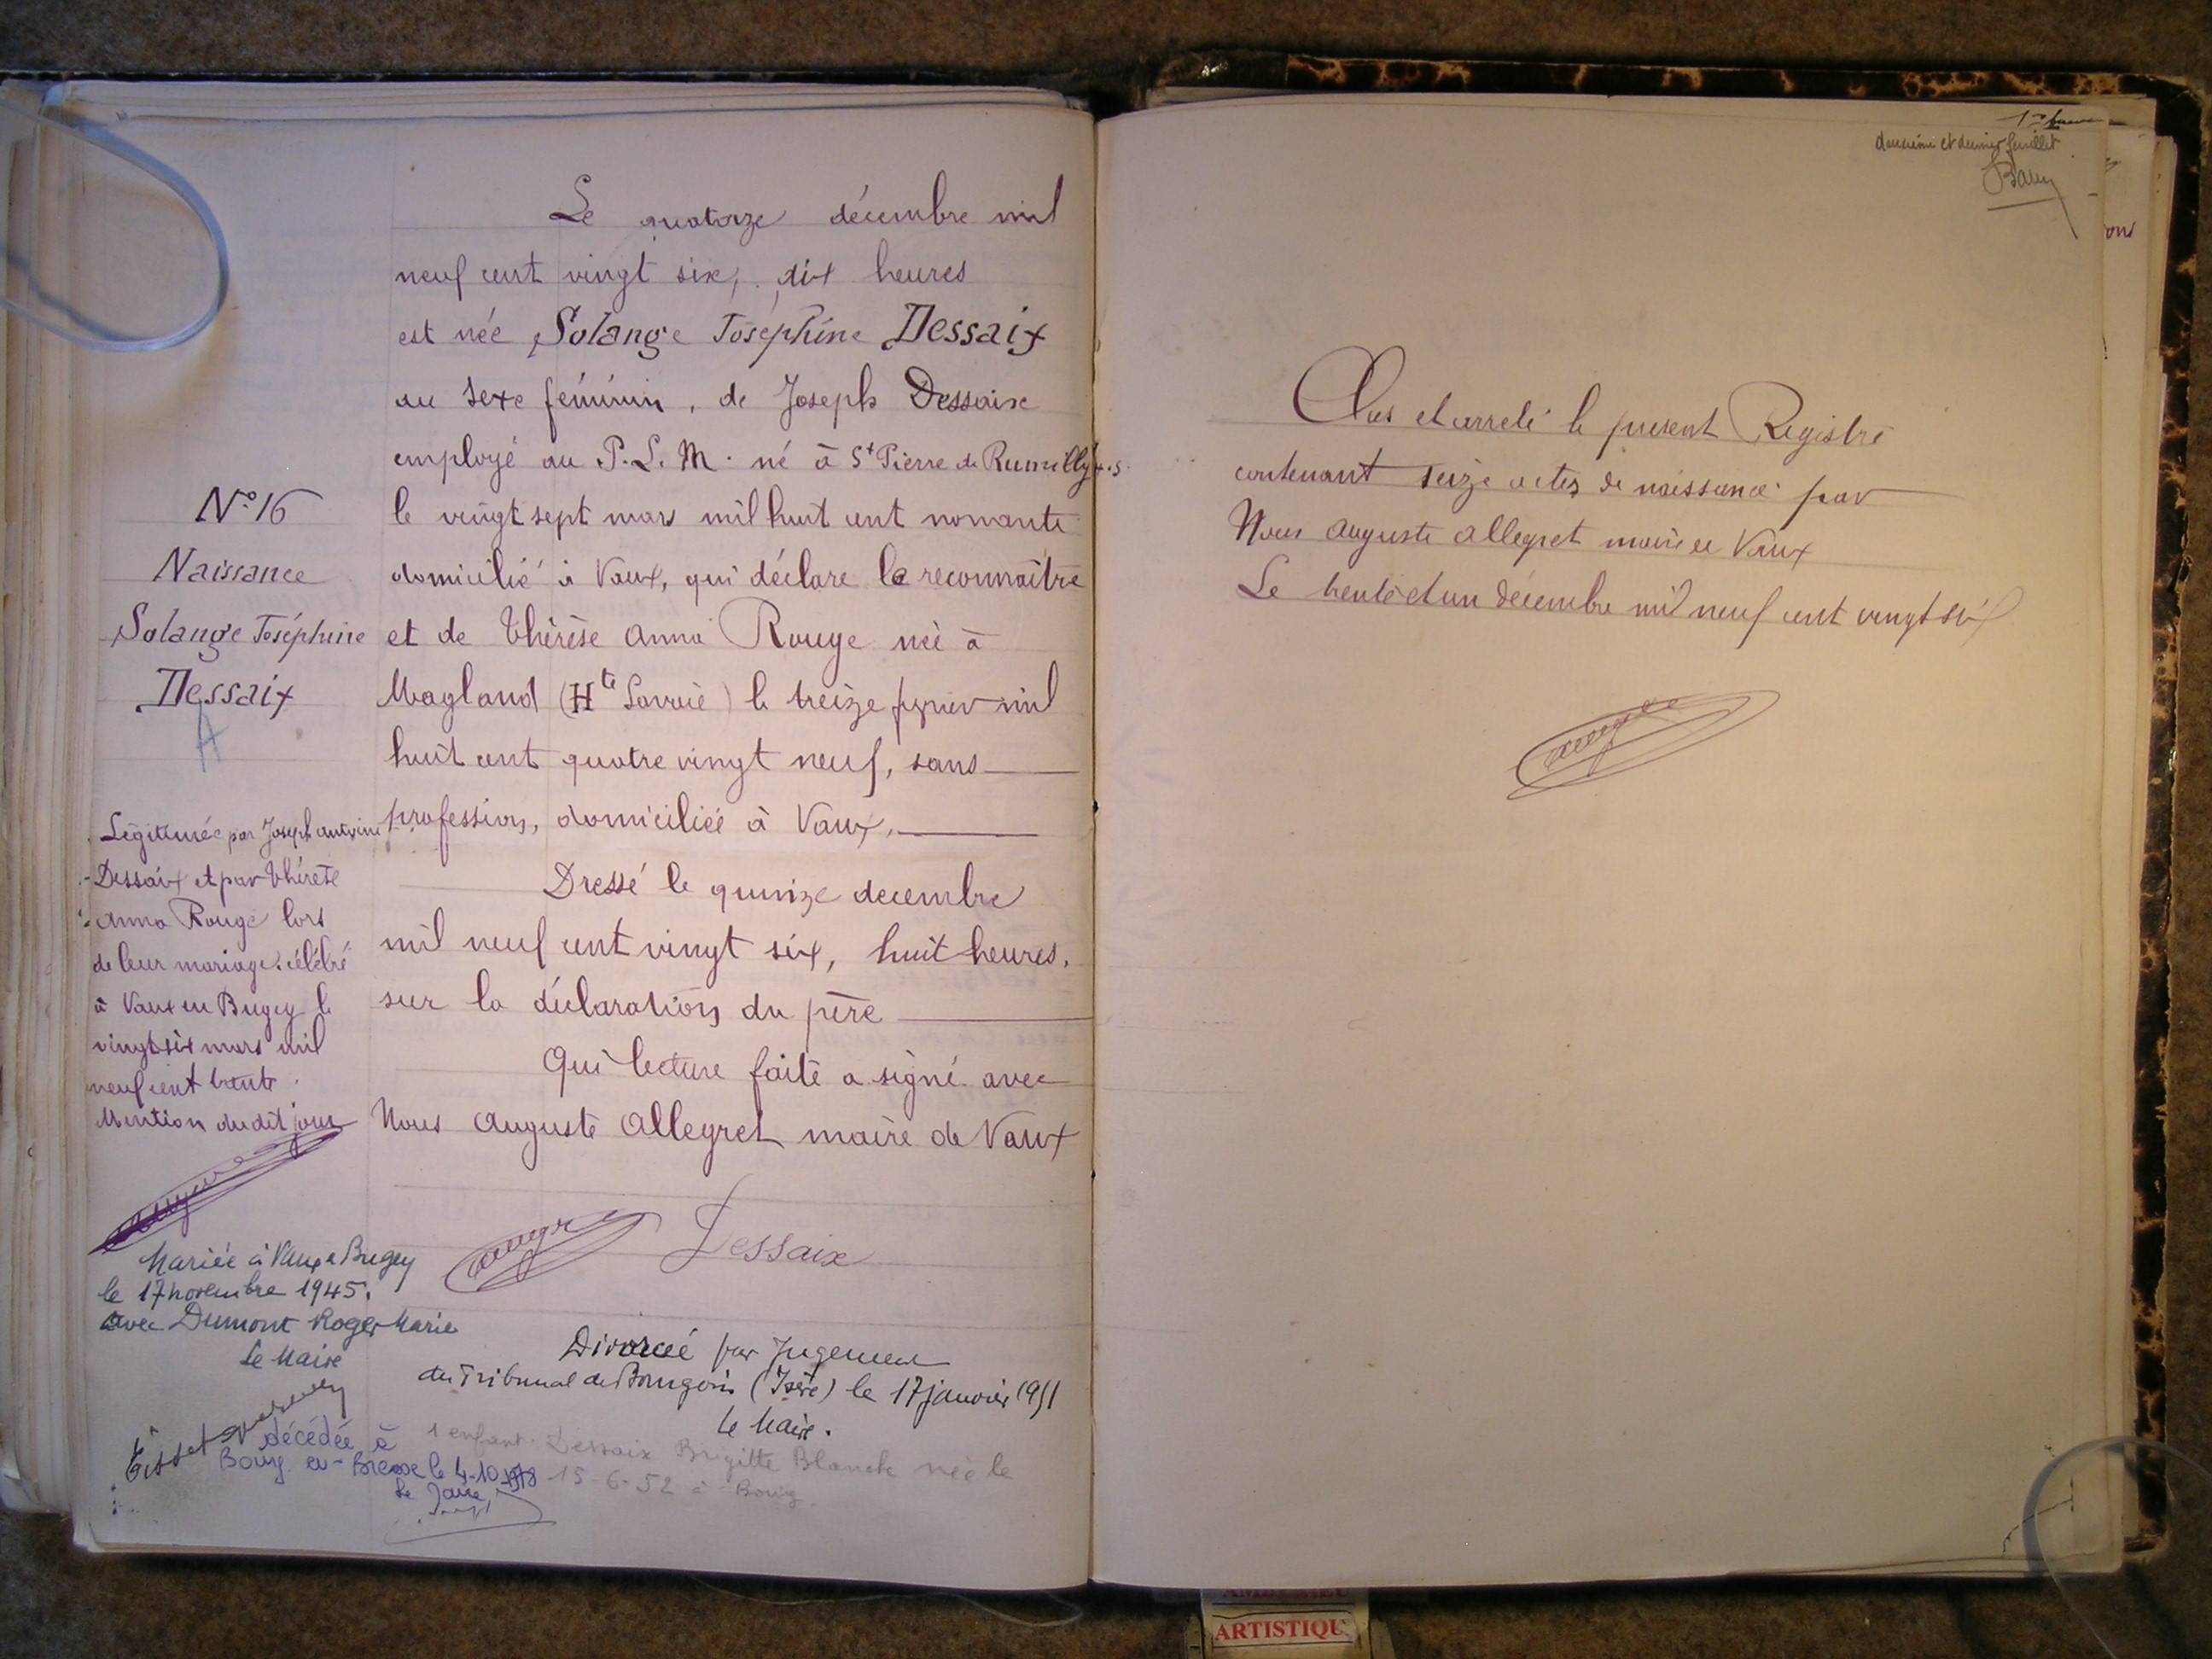 Le quatorze décembre mil
neuf cent vingt six, dix heures
est née Solange Joséphine Dessaix
du sexe féminin, de Joseph Dessaix
employé au P.L.M. né à St Pierre de Rumilly H.S.
le vingt sept mars mil huit cent nonante
domicilié à Vaux, qui déclare la reconnaître
et de Thérèse Anna Rouge née à
Magland (Hte Savoie) le treize mil
huit cent quatre vingt neuf, sans
profession, domiciliée à Vaux,
Dressé le quinze decembre
mil neuf cent vingt six, huit heures,
sur la déclaration du père
Qui lecture faite a signé avec
Nous Auguste Allegret maire de Vaux
Dessaix
N° 16
Naissance
Solange Joséphine
Dessaix
A
Légitimée par Joseph Antoine
Dessaix et par Thérèse
Anna Rouge lors
de leur mariage célébré
à Vaux en Bugey le
vingt six mars mil
neuf cent trente.
Mention dudit jour
Mariée à Vaux en Bugey
le 17 novembre 1945.
avec Dumont Roger Marie
Le Maire
Divorcée par Jugement
du Tribunal de Bourgoin (Isère) le 17 janvier 1951
Le Maire.
décédée à
Bourg-en-Bresse le 4-10-1978
Le Maire
1 enfant Dessaix Brigitte Blanche née le
15-6-52 à Bourg.
deuxième et dernier feuillet
Clos et arreté le present Registre
contenant seize actes de naissance par
Nous Auguste Allegret maire de Vaux
Le trente et un décembre mil neuf cent vingt six
ARTISTIQU